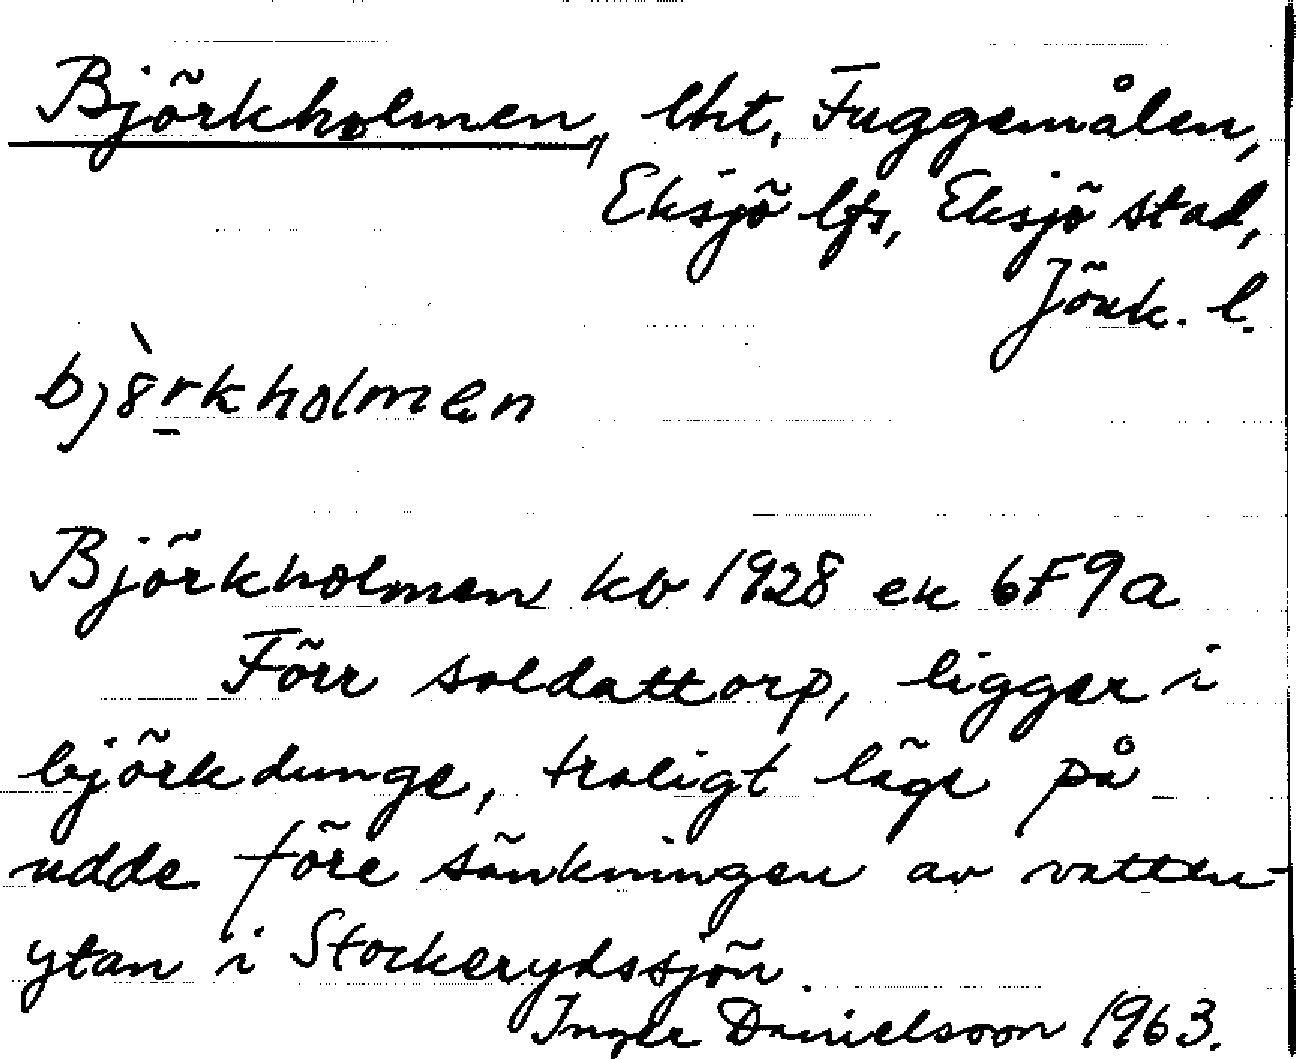 Björkholmen, lht, Fuggemålen,
Eksjö lfs, Eksjö stad,
Jönk. l.
bjö̀rkholmen
Björkholmen kb 1928 ek 6F9a
Förr soldattorp, ligger i
björkdunge, troligt läge på
udde före sänkningen av vatten-
ytan i Stockerydssjön.
Inger Danielsson 1963.